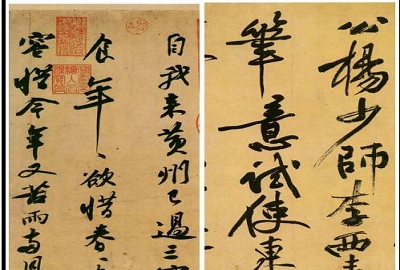 自我来黄州已過三寒
食年〻欲惜春〻
容惜今年又苦雨兩月
公楊少師李西
筆意試使東